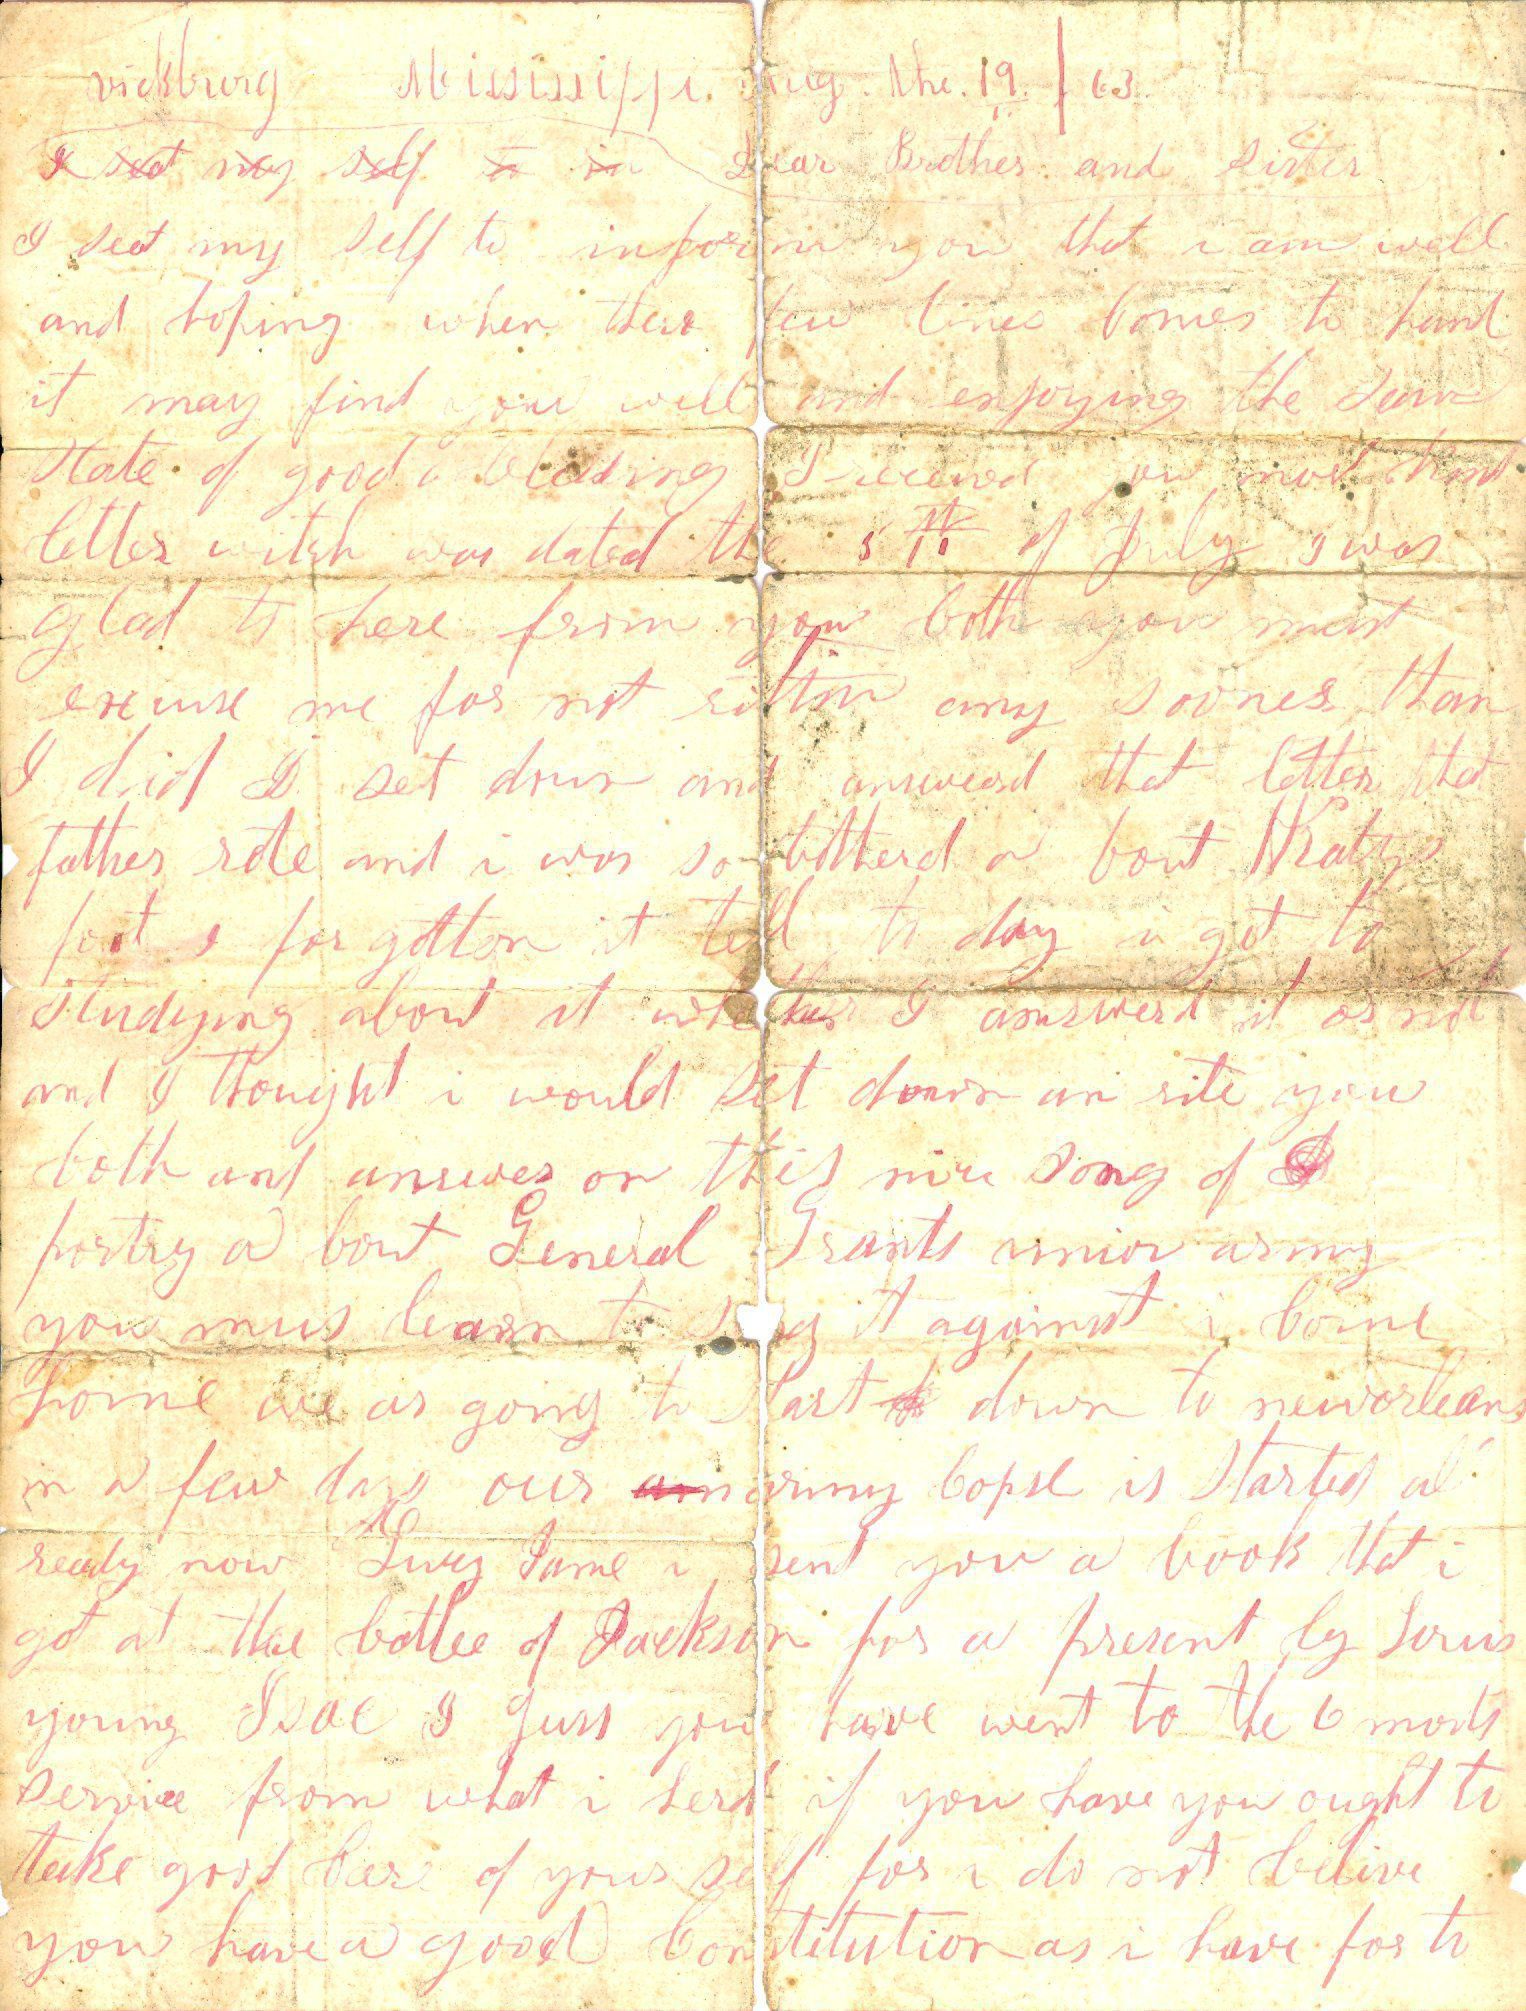 vicksburg Mississippi. Aug. the. 19. / 63.
I seat my self to in Dear Brother and sister
I seat my self to inform you that i am well
and hoping when these few lines comes to hand
it may find you well and enjoying the same
state of good blessing I received you most kind
letter witch was dated the 5th of July I was
glad to here from you both you must
excuse me for not riting any sooner than
I did I set down and answerd that letter that
father rote and i was so botherd a bout
foot I for gotten it tell to day i got to
studying about it whether I answerd it or not
and I thought i would set down an rite you
both and answer on this nice song of
poetry a bout General Grants union army
you mus learn to sing it against i come
home we ar going to start down to neworleans
in a few days our army Copse is started al
ready now Lucy Jane i sent you a book that i
got at the battle of Jackson for a present by Louis
young Isac I guss you have went to the 6 monts
service from what i herd if you have you ought to
take good care of your self for i do not belive
you have a good Constitution as i have for to